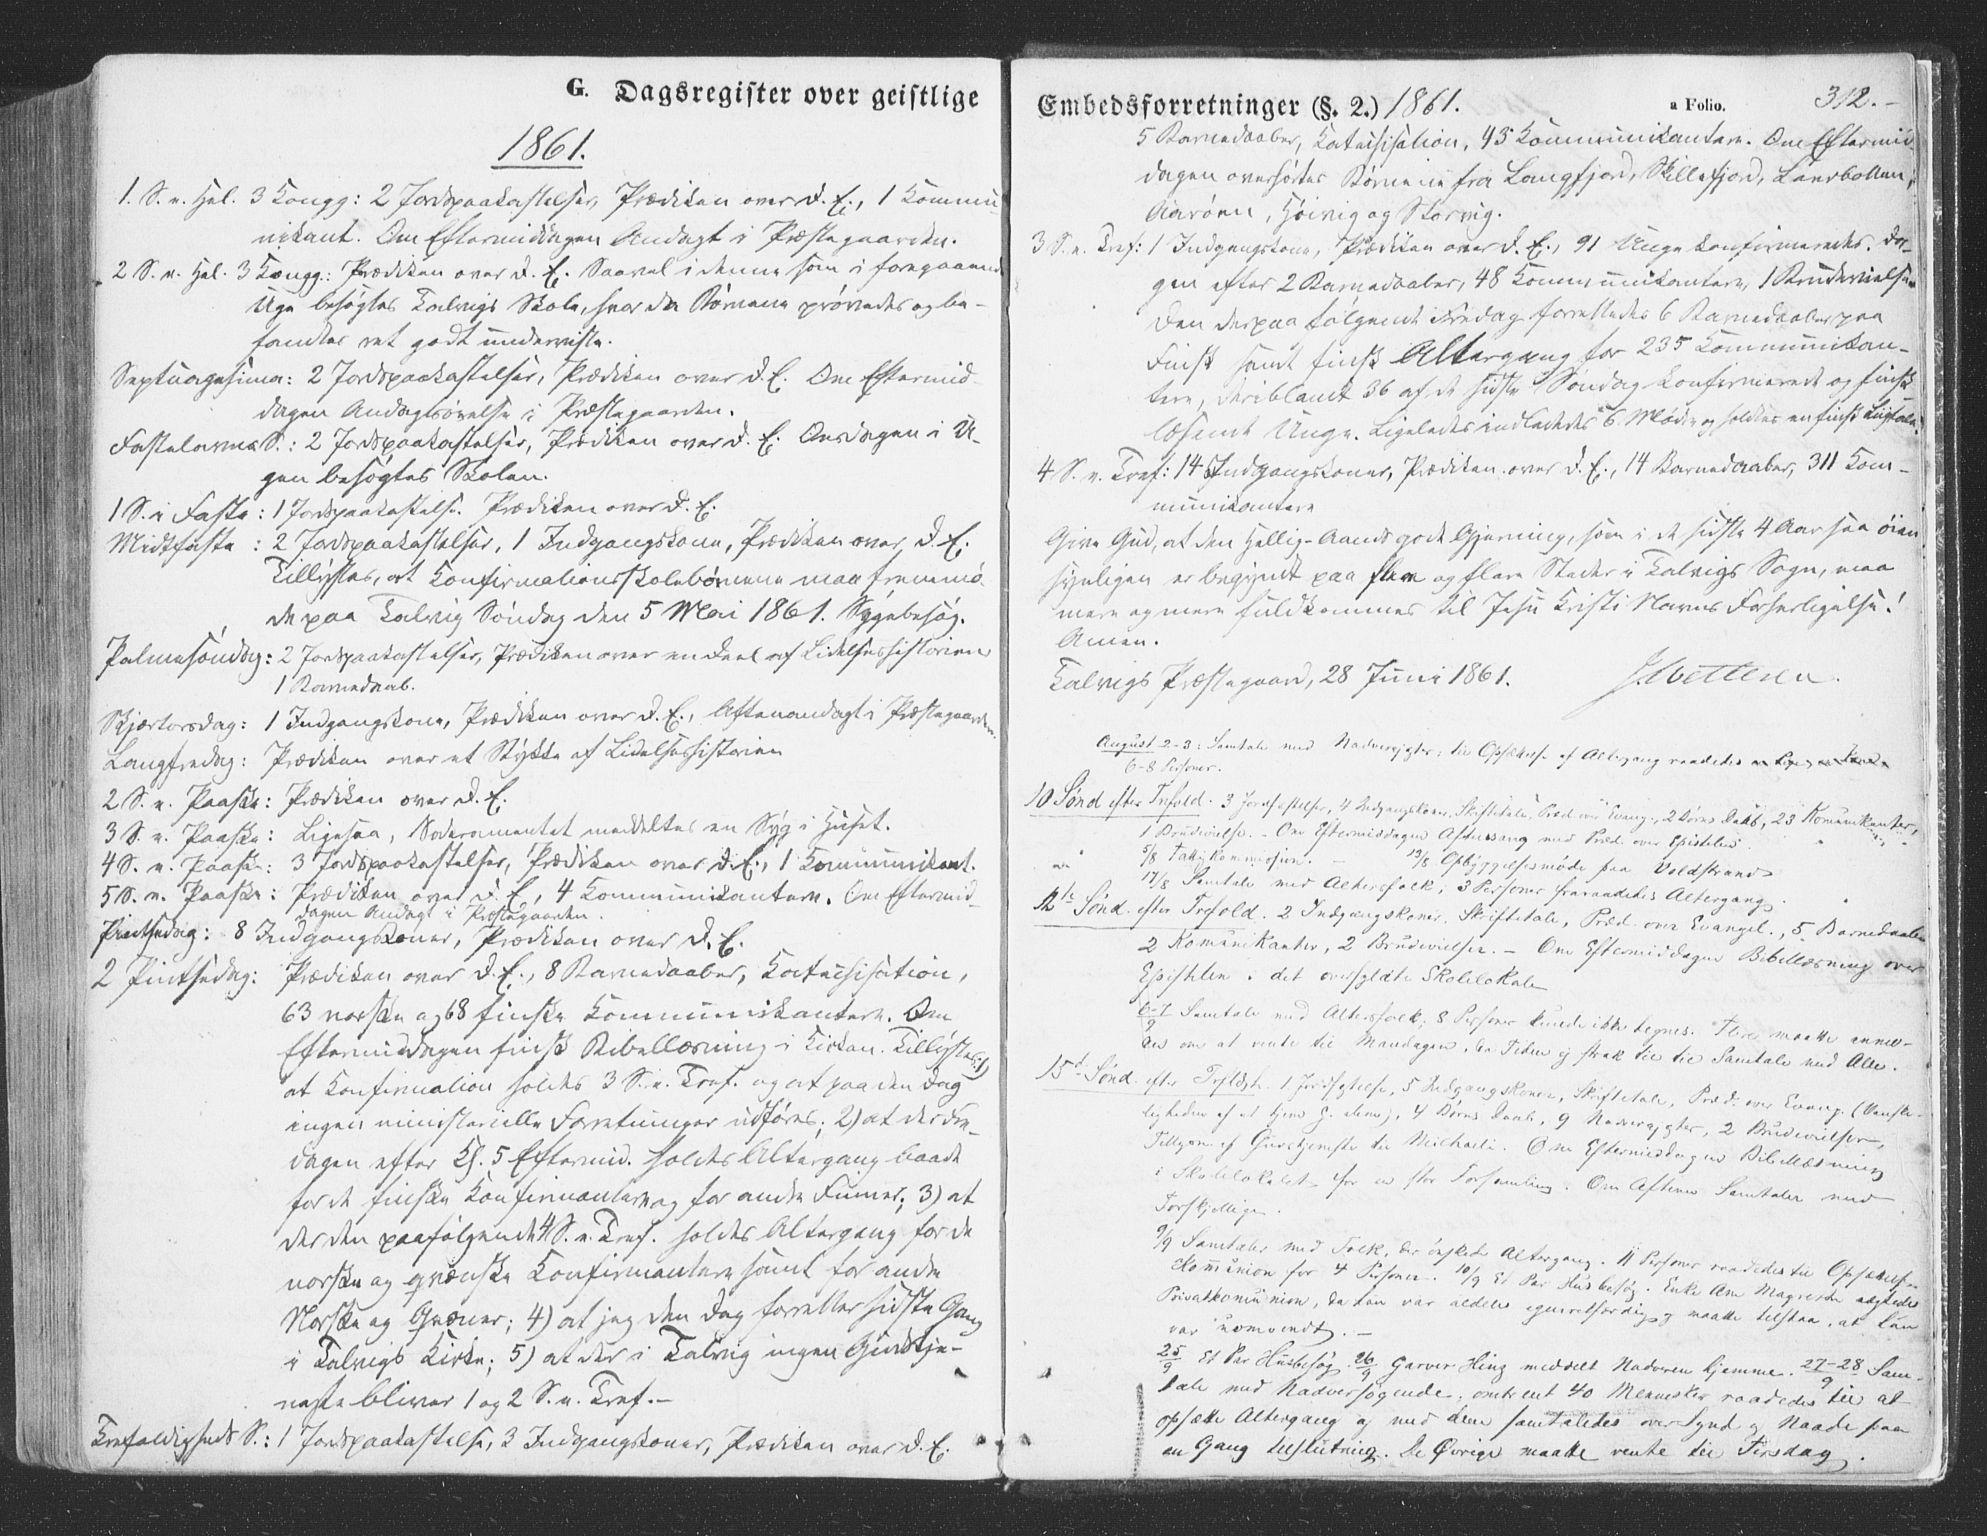 G. Dagsregister over geistlige
1861.
1. S. e. Hel. 3 Kongg: 2 Jordspaakastelser, Prædiken over d. E., 1 Kommu-
nikant. Om Eftermiddagen Andagt i Præstegaarden.
2 S. e. Hel. 3 Kongg.: Prædiken over d. E. Saavel i denne som i foregaaende
Uge besøgtes Talvigs Skole, hvor da Børnene prøvedes og be-
fandtes ret godt underviste.
Septuagesima: 2 Jordspaakastelser, Prædiken over d. E. Om Eftermid-
dagen Andagtsøvelse i Præstegaarden.
Fastelavns S.: 2 Jordspaakastelser, Prædiken over d. E. Onsdagen i U-
gen besøgtes Skolen.
1 S. i Faste: 1 Jordspaakastelse. Prædiken over d. E.
Midtfaste: 2 Jordspaakastelser, 1 Indgangskone, Prædiken over d. E.
Tillystes, at Konfirmationsskolebørnene maa fremmø-
de paa Talvig Søndag den 5 Mai 1861. Sygebesøg.
Palmesøndag: 2 Jordspaakastelser, Prædiken over en Deel af Lidelseshistorien
1 Barnedaab.
Skjærtorsdag: 1 Indgangskone, Prædiken over d. E., Aftenandagt i Præstegaarden.
Langfredag: Prædiken over et Stykke af Lidelseshistorien
2 S. e. Paaske: Prædiken over d. E.
3 S. e. Paaske: Ligesaa, Sacramentet meddeltes en Syg i Huset.
4 S. e. Paaske: 3 Jordspaakastelser, Prædiken over d. E., 1 Kommunikant.
5 S. e. Paaske: Prædiken over d. E., 4 Kommunikantere. Om Eftermid-
dagen Andagt i Præstegaarden.
Pintsedag: 8 Indgangskoner, Prædiken over d. E.
2 Pintsedag: Prædiken over d. E., 8 Barnedaaber, Katechisation,
63 norske og 68 finske Kommunikantere. Om
Eftermiddagen finsk Bibellæsning i Kirken. Tillystes: 1)
at Konfirmation holdes 3 S. e. Tref. og at paa den Dag
ingen ministerielle Forretninger udføres; 2) at der Fre-
dagen efter Kl. 5 Eftermid. holdes Altergang baade
for de finske Konfirmantere og for andre Finner; 3) at
der den paafølgende 4 S. e. Tref. holdes Altergang for de
norske og qvænske Konfirmantere samt for andre
Norske og Qvæner; 4) at jeg den Dag forretter sidste Gang
i Talvigs Kirke; 5) at der i Talvig ingen Gudstje-
neste bliver 1 og 2 S. e. Tref.-
Trefoldigheds S.: 1 Jordspaakastelse, 3 Indgangskoner, Prædiken over d. E.
Embedsforretninger (§. 2.) 1861. a Folio. 312.-
5 Barnedaaber, Katechisation, 43 Kommunikantere. Om Eftermid-
dagen overhørtes Børnene fra Langfjord, Skillefjord, Lerrbotten,
Aarøen, Høivig og Storvig.
3 S. e. Tref: 1 Indgangskone, Prædiken over d. E., 91 Unge konfirmeredes. Da-
gen efter 2 Barnedaaber, 48 Kommunikantere, 1 Brudevielse.
Den derpaa følgende Fredag forrettedes 6 Barnedaaber paa
Finsk samt finsk Altergang for 235 Kommunikan-
tere, deriblandt 36 af de sidste Søndag konfirmerede og finsk
læsende Unge. Ligeledes indledtes 6 Mødre og holdtes en finsk Ligtale.
4 S. e. Tref: 14 Indgangskoner, Prædiken over d. E., 14 Barnedaaber, 311 Kom-
munikantere
Give Gud, at den Hellig-Aands gode Gjerning, som i de sidste 4 Aar saa øien-
synligen er begyndt paa flere og flere Steder i Talvigs Sogn, maa
mere og mere fuldkommes til Jesu Kristi Navns Forherligelse!
Amen.
Talvigs Præstegaard, 28 Juni 1861.
August 2-3: Samtale med Nadvergjæster; til Opsættelse af Altergang raadedes
6-8 Personer.
10 Sønd efter Trefold. 3 Jordfæstelser, 4 Indgangskoner, Skriftetale, Præd. over Evang., 2 Børns Daab, 23 Komunikanter,
1 Brudevielse. - Om Eftermiddagen Aftensang med Præd. over Epistelen.
5/8 Fattigkommission. - 13/8 Opbyggelsesmøde paa Voldstrand
17/8 Samtale med Altersfolk; 3 Personer fraraadedes Altergang.
12te Sønd. efter Trefold. 2 Indgangskoner, Skriftetale, Præd. over Evangel., 5 Barnedaaber
2 Komunikanter, 2 Brudevielser. - Om Eftermiddagen Bibellæsning over
Epistelen i det overfyldte Skolelokale
6-7/9 Samtale med Altersfolk; 8 Personer kunde ikke tegnes. Flere maatte anmo-
des om at vente til Mandagen, da Tiden ej strak til til Samtale med Alle.
15d Sønd. efter Trfldgh. 1 Jordfæstelse, 5 Indgangskoner, Skriftetale, Præd. over Evang. (Vanske-
ligheden af at tjene G. alene), 4 Børns Daab, 9 Nadvergjæster, 2 Brudevielser,
Tillysn. af Gudstjeneste til Michaeli. Om Eftermiddagen Bibellæsning
i Skolelokalet for en stor Forsamling. Om Aftenen Samtaler med
Forskjellige.
9/9 Samtaler med Folk, der ønskede Altergang. 11 Personer raadedes til Opsættelse.
Komunion for 4 Personer. 10/9 Et Par Husbesøg. Enke Ane Magrethe nægtedes
Privatkomunion, da hun var aldeles egenretfærdig og maatte tilstaa, at hun
var uomvendt. -
25/9 Et Par Husbesøg. 26/9 Garver Hinz meddelt Nadveren hjemme. 27-28/9 Sam-
tale med Nadversøgende; omtrent 40 Mennesker raadedes til at
opsætte Altergang og med dem samtaledes over Synd og Naade paa
en Gang tilslutning. De Øvrige maatte vente til Tirsdag.